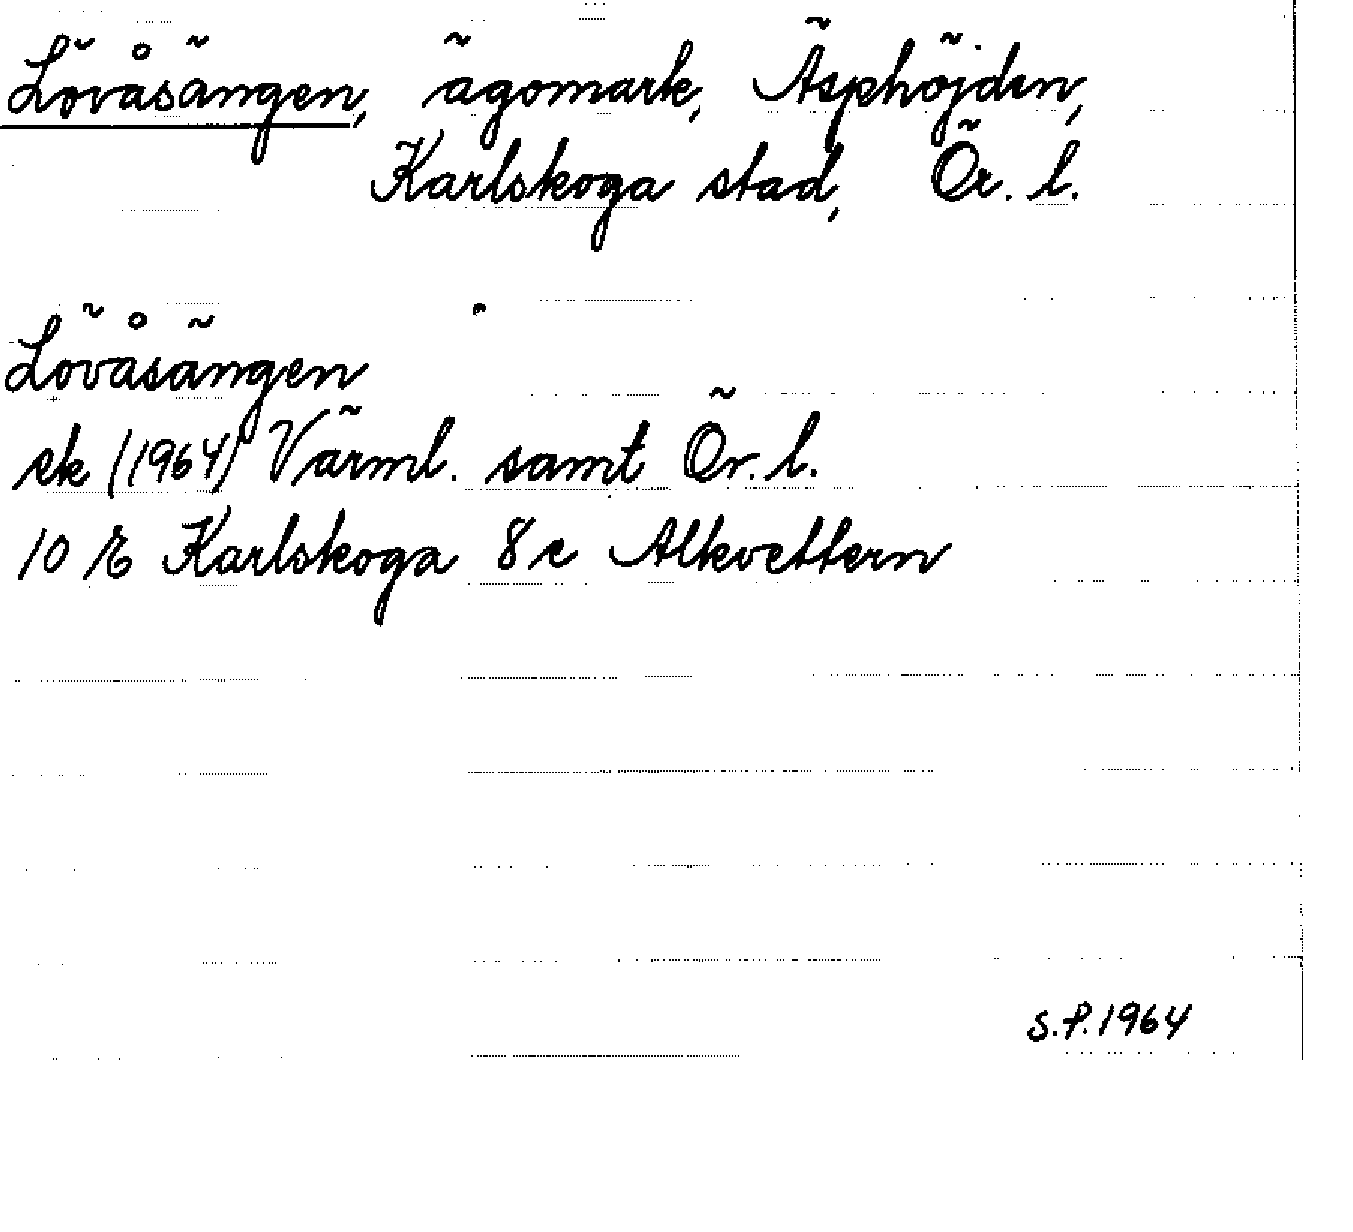 Lövåsängen, ägomark, Äsphöjden,
Karlskoga stad, Ör. l.
Lövåsängen
ek (1964) Värml. samt Ör. l.
10 E Karlskoga 8 e Alkvettern
S.P. 1964